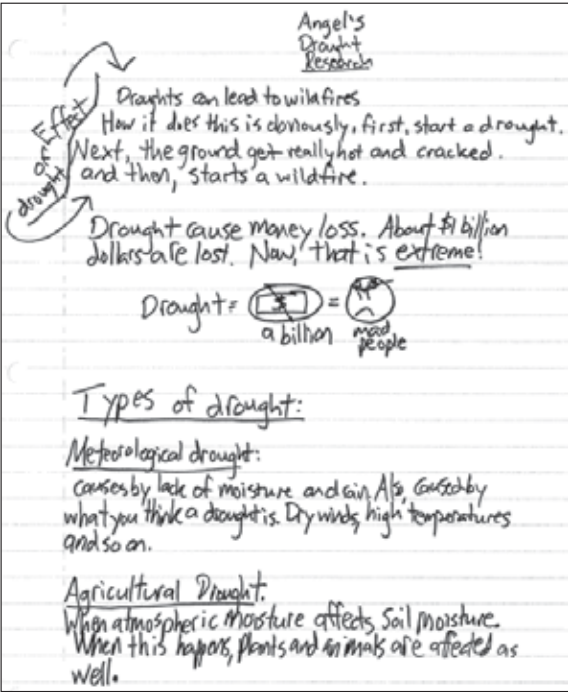 Angel's
Draught
Research
Draughts can lead to wildfires
How it does this is obviously, first, start a drought.
Next, the ground get really hot and cracked.
and then, starts a wildfire.
drought
Effect
Drought cause money loss. About $1 billion
dollars are lost. Now, that is extreme!
Drought = $ =
a billion mad
people
Types of drought:
Meteorological drought:
causes by lack of moisture and rain. Also, caused by
what you think a drought is. Dry winds, high temperatures
and so on.
Agricultural Drought.
When atmospheric moisture affects soil moisture.
When this happens, plants and animals are affected as
well.